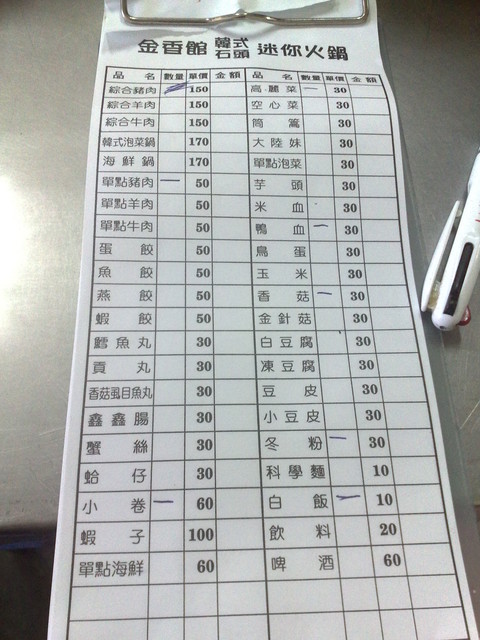 金香館 韓式石頭 迷你火鍋
品名 數量 單價 金額 品名 數量 單價 金額
綜合豬肉 150 高麗菜 一 30
綜合羊肉 150 空心菜 30
綜合牛肉 150 茼蒿 30
韓式泡菜鍋 170 大陸妹 30
海鮮鍋 170 單點泡菜 30
單點豬肉 一 50 芋頭 30
單點羊肉 50 米血 30
單點牛肉 50 鴨血 一 30
蛋餃 50 鳥蛋 30
魚餃 50 玉米 30
燕餃 50 香菇 一 30
蝦餃 50 金針菇 30
鱈魚丸 30 白豆腐 30
貢丸 30 凍豆腐 30
香菇虱目魚丸 30 豆皮 30
鑫鑫腸 30 小豆皮 30
蟹絲 30 冬粉 一 30
蛤仔 30 科學麵 10
小卷 一 60 白飯 一 10
蝦子 100 飲料 20
單點海鮮 60 啤酒 60